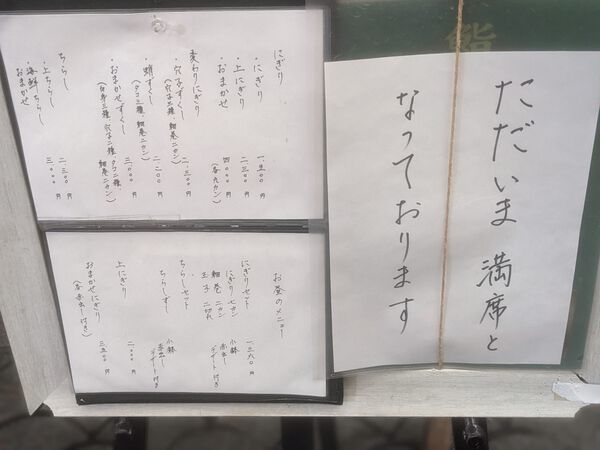 鮨
ただいま 満席と
なっております
にぎり
・にぎり 一.五〇〇円
・上にぎり 二.三〇〇円
・おまかせ 四.〇〇〇円
(各九カン)
変わりにぎり
・穴子ずくし 二.三〇〇円
(穴子三種、細巻ニカン)
・蛸ずくし 二.二〇〇円
(タコ三種、細巻ニカン)
・おまかせずくし 三.〇〇〇円
(白身三種、穴子二種、タコ二種、細巻ニカン)
ちらし
・上ちらし 二.三〇〇円
・海鮮ちらし
おまかせ 三.〇〇〇円
お昼のメニュー
にぎりセット 一.三六〇円
にぎり七カン 小鉢
細巻ニカン 赤出し
玉子二切れ デザート付き
ちらしセット
ちらしずし 小鉢
赤出し
デザート付き
上にぎり 二.〇〇〇円
おまかせにぎり 三.五〇〇円
(各赤出し付き)